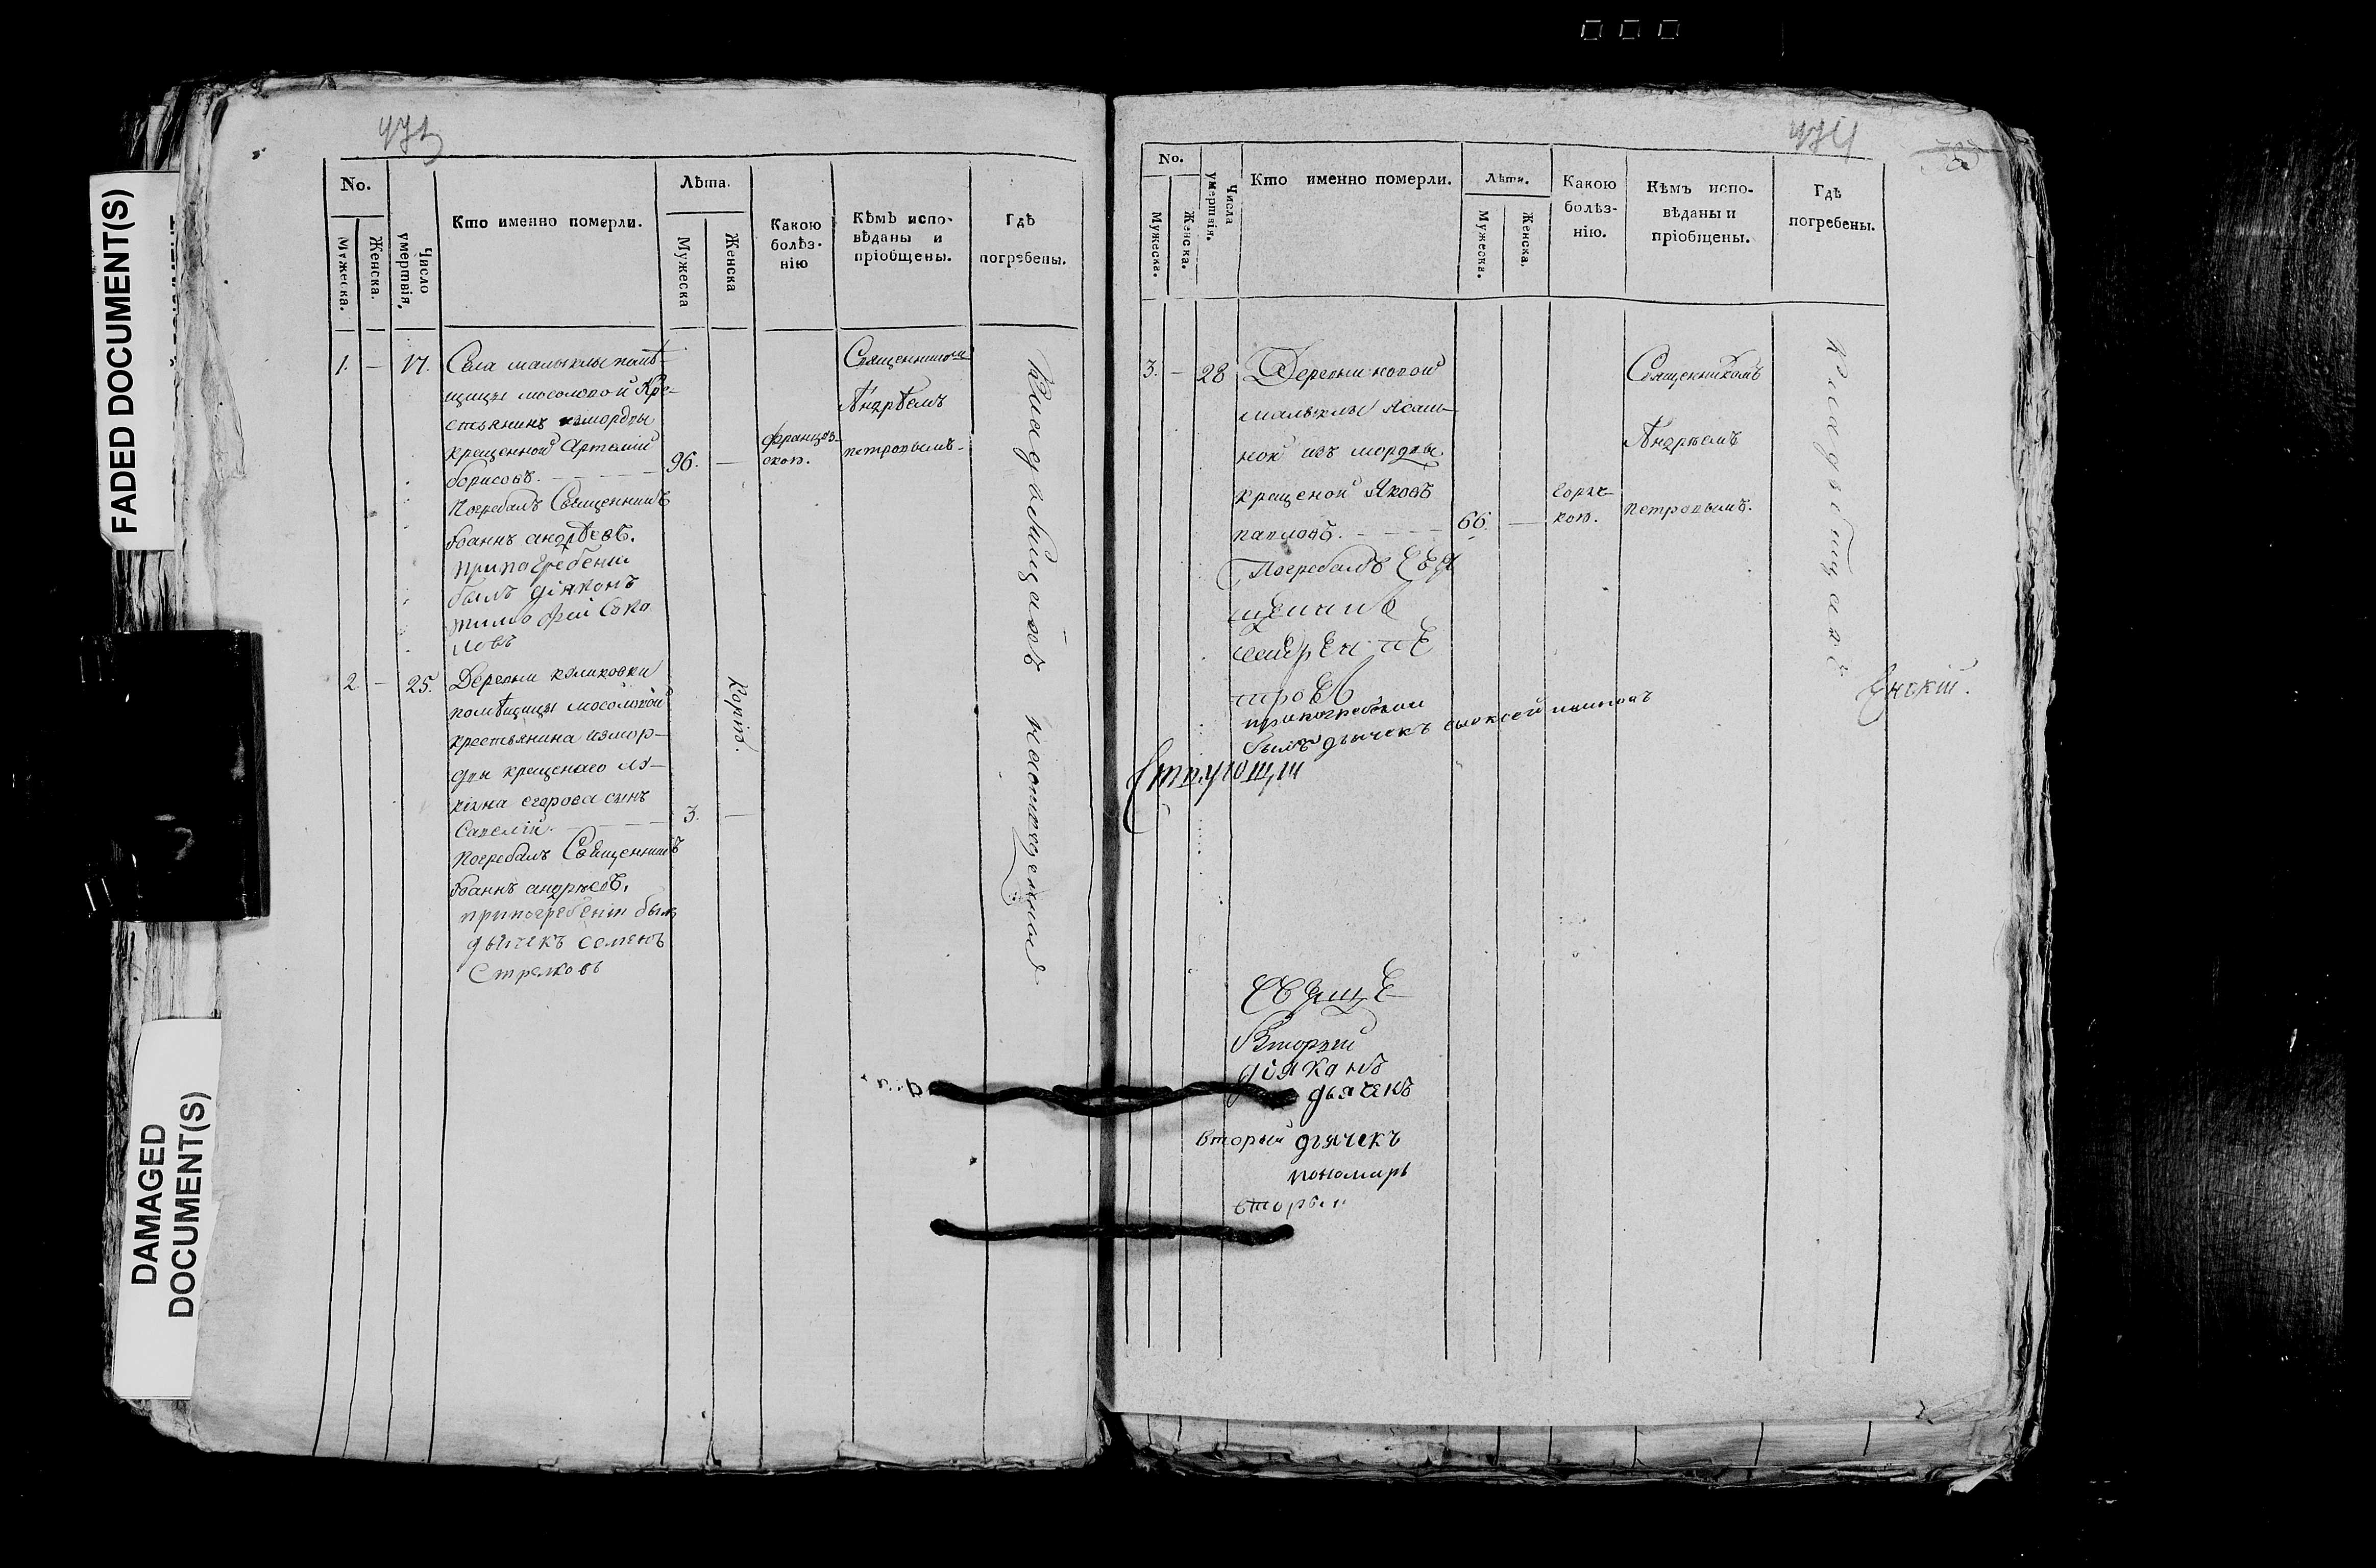 FADED DOCUMENT(S)
DAMAGED
DOCUMENT(S)
473
No.
Мужеска.
Женска.
Число
умертвія.
Кто именно померли.
Лѣта.
Мужеска
Женска
Какою
болѣз-
нію
Кѣмъ испо-
вѣданы и
пріобщены.
Гдѣ
погребены.
1. — 17. Села малыклы помѣ-
щицы мосоловой Кре-
стьянинъ измордвы
крещенной Артемій
борисовъ. — 96. —
Погребалъ Священникъ
Іоаннъ андрѣевъ.
припогребени
былъ діяконъ
тимофеи Соко
ловъ
францоз-
скою.
Священникомъ
Андрѣемъ
петровымъ.
Кладбищахъ
2 — 25. Деревни куликовки
помѣщицы мосоловой
крестьянина измор-
двы крещенаго
егорова сынъ
Савелій. — 3. —
погребалъ Священникъ
Іоаннъ андрѣевъ.
припогребеніи былъ
дьячекъ семенъ
Стрелковъ
Коріею.
474
No.
Мужеска.
Женска.
Числа
умертвія.
Кто именно померли.
Лѣта.
Мужеска.
Женска.
Какою
болѣз-
нію.
Кѣмъ испо-
вѣданы и
пріобщены.
Гдѣ
погребены.
3. — 28 Деревни новой
малыклы Ясаш-
ной изъ мордвы
крещеной Яковъ
павловъ. — 66. —
Погребалъ Свя
припогребении
былъ дьячекъ алексей
горяч-
кою.
Священникомъ
Андрѣемъ
петровымъ.
Кладбищахъ
Свяще
Вторый
діяканъ
дьячекъ
вторыи дьячекъ
пономарь
вторыи